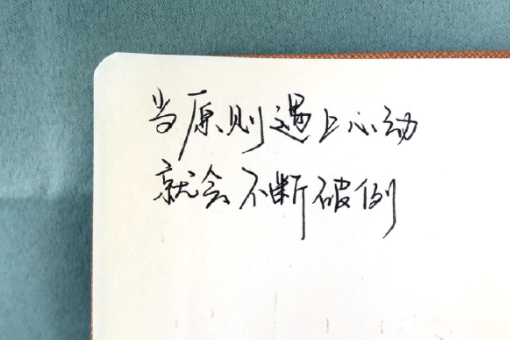 当原则遇上心动
就会不断破例